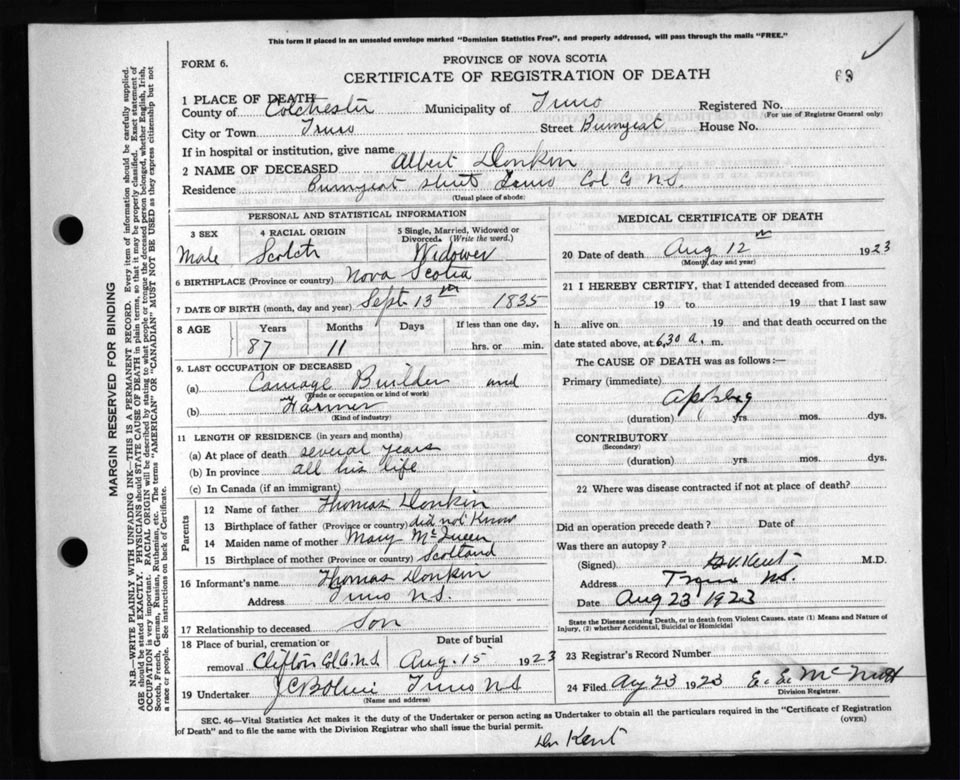 This form if placed in an unsealed envelope marked "Dominion Statistics Free", and properly addressed, will pass through the mails "FREE."
FORM 6.
PROVINCE OF NOVA SCOTIA
CERTIFICATE OF REGISTRATION OF DEATH
1 PLACE OF DEATH
County of Colchester Municipality of Truro Registered No.
(For use of Registrar General only)
City or Town Truro Street House No.
If in hospital or institution, give name
2 NAME OF DECEASED Albert Donkin
Residence Truro Col Co N.S.
(Usual place of abode)
PERSONAL AND STATISTICAL INFORMATION
3 SEX
Male
4 RACIAL ORIGIN
Scotch
5 Single, Married, Widowed or Divorced. (Write the word.)
Widower
6 BIRTHPLACE (Province or country) Nova Scotia
7 DATE OF BIRTH (month, day and year) Sept 13th 1835
8 AGE
Years Months Days If less than one day,
87 11 hrs. or min.
9. LAST OCCUPATION OF DECEASED
(a) Carriage Builder and
(Trade or occupation or kind of work)
(b) Farmer
(Kind of industry)
11 LENGTH OF RESIDENCE (in years and months)
(a) At place of death several years
(b) In province all his life
(c) In Canada (if an immigrant)
Parents
12 Name of father Thomas Donkin
13 Birthplace of father (Province or country) did not Know
14 Maiden name of mother Mary McQueen
15 Birthplace of mother (Province or country) Scotland
16 Informant's name Thomas Donkin
Address Truro N.S.
17 Relationship to deceased Son
18 Place of burial, cremation or removal Clifton Col. Co. N.S.
Date of burial
Aug. 15 1923
19 Undertaker Truro N S
(Name and address)
MEDICAL CERTIFICATE OF DEATH
20 Date of death Aug 12th 1923
(Month, day and year)
21 I HEREBY CERTIFY, that I attended deceased from
19 to 19 that I last saw
h alive on 19 and that death occurred on the
date stated above, at 6.30 a. m.
The CAUSE OF DEATH was as follows:—
Primary (immediate)
(duration) yrs. mos. dys.
CONTRIBUTORY
(Secondary)
(duration) yrs. mos. dys.
22 Where was disease contracted if not at place of death?
Did an operation precede death? Date of
Was there an autopsy?
(Signed) Kent M.D.
Address Truro N.S.
Date Aug 23 1923
State the Disease causing Death, or in death from Violent Causes, state (1) Means and Nature of Injury, (2) whether Accidental, Suicidal or Homicidal
23 Registrar's Record Number
24 Filed Aug 23 1923 E. E. McNutt
Division Registrar.
SEC. 46—Vital Statistics Act makes it the duty of the Undertaker or person acting as Undertaker to obtain all the particulars required in the "Certificate of Registration
of Death" and to file the same with the Division Registrar who shall issue the burial permit.
(OVER)
Dr Kent
MARGIN RESERVED FOR BINDING
N.B.—WRITE PLAINLY WITH UNFADING INK—THIS IS A PERMANENT RECORD. Every item of information should be carefully supplied.
AGE should be stated EXACTLY. PHYSICIANS should STATE CAUSE OF DEATH in plain terms, so that it may be properly classified. Exact statement of
OCCUPATION is very important. RACIAL ORIGIN will be described by stating to what people or tongue the deceased person belonged, whether English, Irish,
Scotch, French, German, Russian, Ruthenian, etc. The terms "AMERICAN" OR "CANADIAN" MUST NOT BE USED as they express citizenship but not
a race or people. See instructions on back of Certificate.